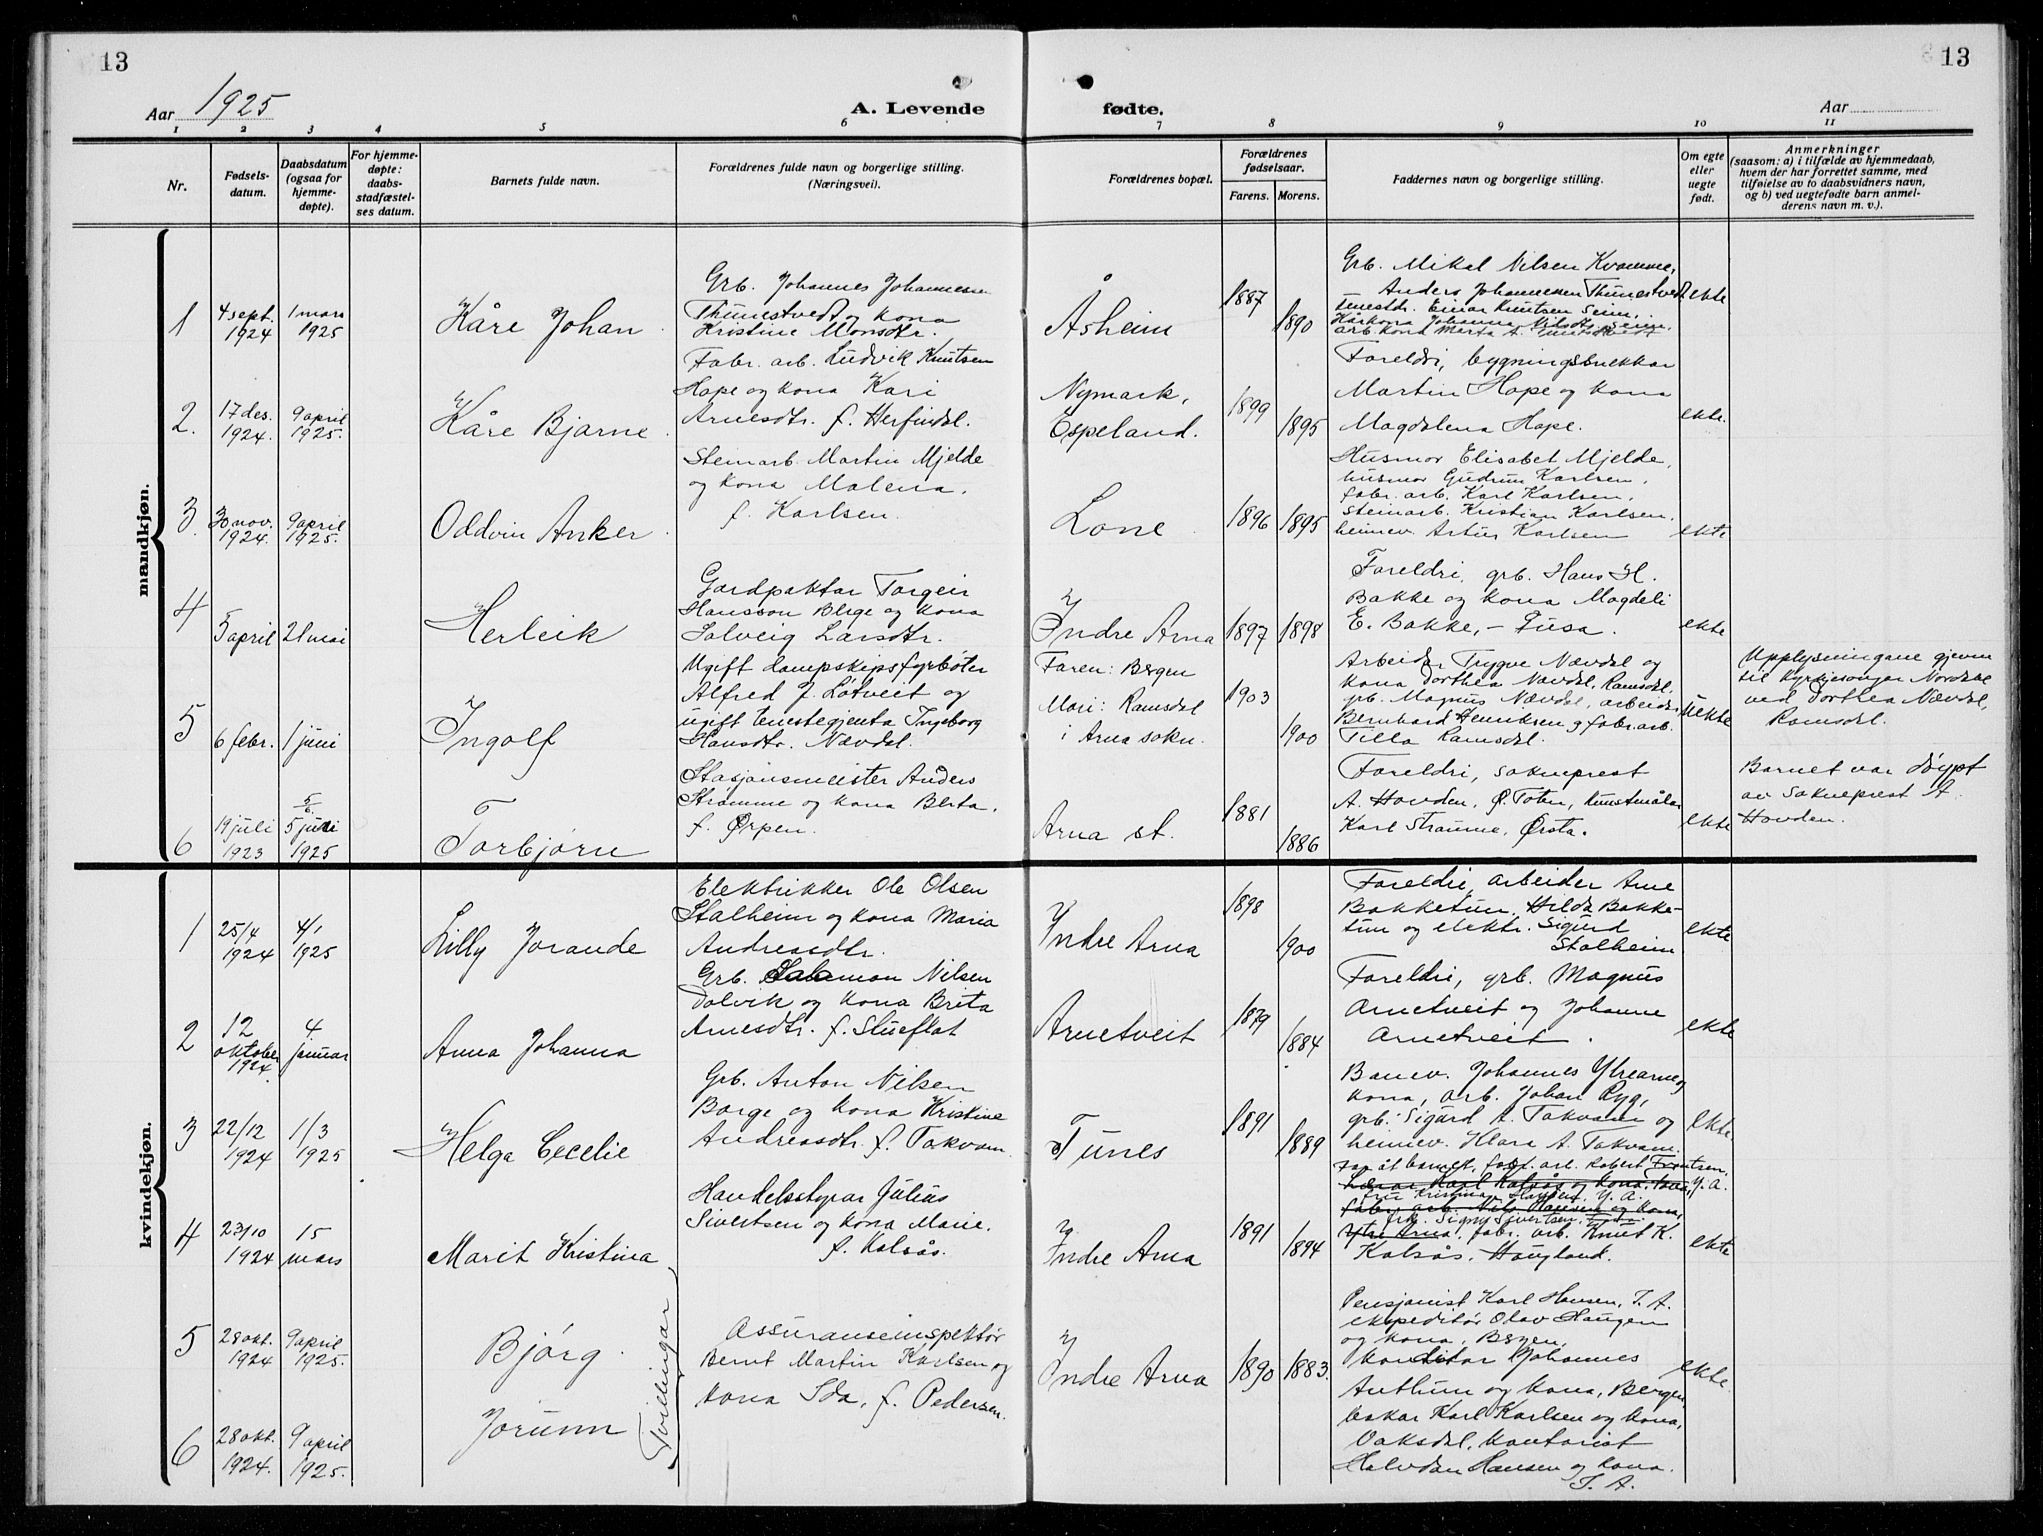 13
13
Aar 1925
A. Levende fødte.
Aar
1 2 3 4 5 6 7 8 9 10 11
Nr.
Fødsels-
datum.
Daabsdatum
(ogsaa for
hjemme-
døpte).
For hjemme-
døpte:
daabs-
stadfæstel-
ses datum.
Barnets fulde navn.
Forældrenes fulde navn og borgerlige stilling.
(Næringsvei).
Forældrenes bopæl.
Forældrenes
fødselsaar.
Farens. Morens.
Faddernes navn og borgerlige stilling.
Om egte
eller
uegte
født.
Anmerkninger
(saasom: a) i tilfælde av hjemmedaab,
hvem der har forrettet samme, med
tilføielse av to daabsvidners navn,
og b) ved uegtefødte barn anmel-
derens navn m. v.).
mandkjøn.
1
4 sept.
1924
1 mars
1925
Kåre Johan
Grb. Johannes Johannessen
Thunestvedt og kona
Kristine Monsdtr.
Åsheim
1887
1890
Grb. Mikal Nilsen Kvamme,
Anders Johannessen Thunestvedt
tenestdr. Einar Knutsen Seim,
ekte
2.
17 des.
1924.
9 april
1925.
Kåre Bjarne
Fabr. arb. Ludvik Knutsen
Hope og kona Kari
Arnesdtr. f. Herfindal.
Nymark,
Espeland.
1899
1895
Foreldri, bygningssnekkar
Martin Hope og kona
Magdalena Hope.
ekte.
3.
30 nov.
1924.
9 april
1925.
Oddvin Anker
Steinarb. Martin Mjelde
og kona Malena,
f. Karlsen.
Lone
1896
1895
Husmor Elisabet Mjelde,
husmor Gudrun Karlsen,
fabr. arb. Karl Karlsen,
steinarb. Kristian Karlsen,
heimev. Artur Karlsen
ekte
4
5 april
21 mai
Herleik
Gardpaktar Torgeir
Hansson Berge og kona
Solveig Larsdtr.
Indre Arna
1897
1898
Foreldri, grb. Hans H.
Bakke og kona Magdeli
E. Bakke, – Fusa.
ekte
5
6 febr.
1 juni
Ingolf
Ugift dampskipsfyrbøter
Alfred J. Løtveit og
ugift tenestegjenta Ingeborg
Hansdtr. Nævdal.
Faren: Bergen
Mori: Ramsdal
i Arna sokn.
1903
1900
Arbeider Trygve Nævdal og
kona Dorthea Nævdal, Ramsdal,
grb. Magnus Nævdal, arbeider
Bernhard Henriksen og fabr. arb.
Tilla Ramsdal.
uekte
Upplysningane gjevne
til kyrkjesongar Nordal
ved Dorthea Nævdal,
Ramsdal.
6
19 juli
1923
5/6
5 juni
1925
Torbjørn
Stasjonsmeister Anders
Straumme og kona Berta,
f. Ørpen.
Arna st.
1881
1886
Foreldri, sokneprest
A. Hovden, Ø. Toten, kunstmålar
Karl Straume, Ørsta.
ekte
Barnet var døypt
av sokneprest A.
Hovden.
kvindekjøn.
1
25/4
1924
4/1
1925
Lilly Jorande
Elektrikker Ole Olsen
Stalheim og kona Maria
Andreasdtr.
Indre Arna
1898
1900
Foreldri, arbeider Arne
Bakketun, Hilda Bakke-
tun og elektr. Sigurd
Stalheim
ekte
2
12
oktober
1924.
4
januar
Anna Johanna
Grb. Salamon Nilsen
Dalvik og kona Brita
Arnesdtr. f. Stueflot
Arnetveit
1879
1884
Foreldri, grb. Magnus
Arnetveit og Johanne
Arnetveit.
ekte
3
22/12
1924
1/3
1925
Helga Cecelie
Grb. Anton Nilsen
Borge og kona Kristine
Andreasdtr. f. Takvam.
Tunes
1891
1889
Banev. Johannes Ytrearne og
kona, arb. Johan Ryg,
grb. Sigurd A. Takvam og
heimev. Klara A. Takvam.
ekte.
4
23/10
1924
15
mars
Marit Kristina
Handelsstyrar Julius
Sivertsen og kona Marie,
f. Kalsås.
Indre Arna
1891
1894
frk. Signy Sivertsen,
Ytre Arna, fabr. arb. Knut K.
Kalsås, Haugland.
ekte
5
28 okt.
1924
9 april
1925.
Bjørg.
Assuranseinspektør
Bernt Martin Karlsen og
kona Ida, f. Pedersen.
Indre Arna
1890
1883.
Pensjonist Karl Hansen, I. A.
ekspeditør Olav Haugen
og kona, Bergen,
konditor Johannes
Anthun og kona, Bergen
bakar Karl Karlsen og kona,
Vaksdal, kontorist
Halvdan Hansen og kona.
I. A.
ekte.
6
28 okt.
1924.
9 april
1925.
Jorunn
Tvillingar